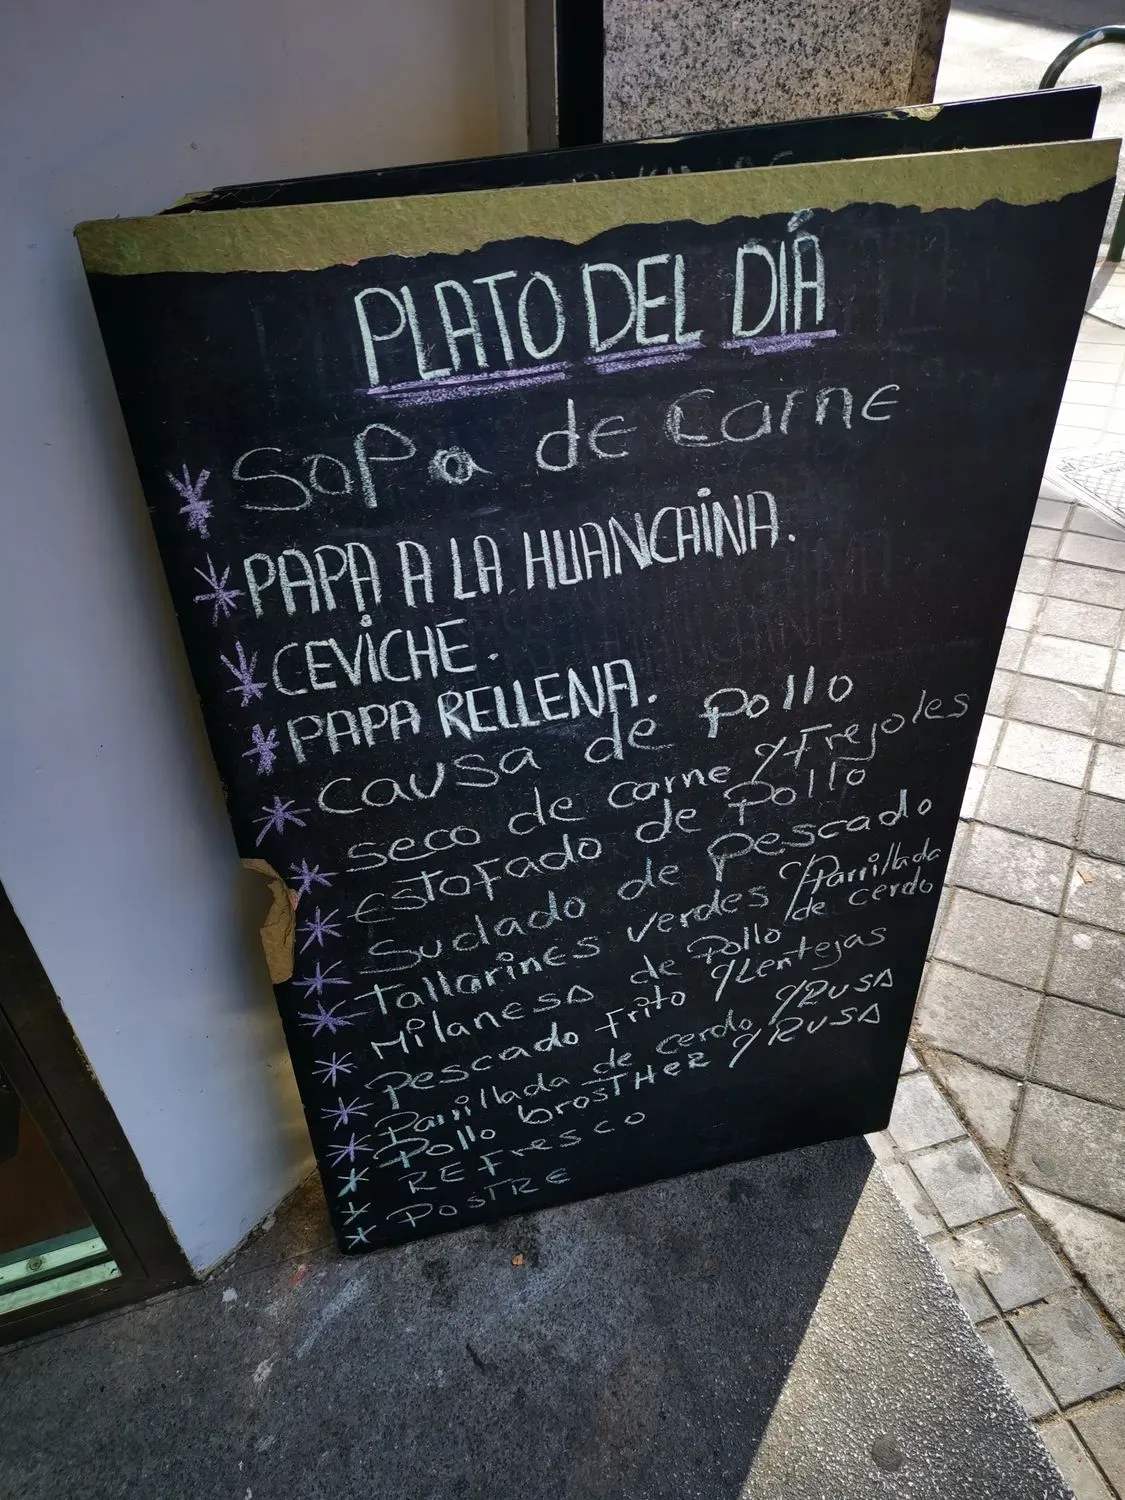 PLATO DEL DIÁ
* SoPa de Carne
* PAPA A LA HUANCAINA.
* CEVICHE.
* PAPA RELLENA.
* causa de pollo
* seco de carne y Frejoles
* EsTofado de Pollo
* Sudado de Pescado
* Tallarines verdes y/Parrillada de cerdo
* Milanesa de Pollo
* Pescado Frito y Lentejas
* Parrillada de cerdo y RUSA
* Pollo brosTHer y RUSA
* REFresco
* PosTRE